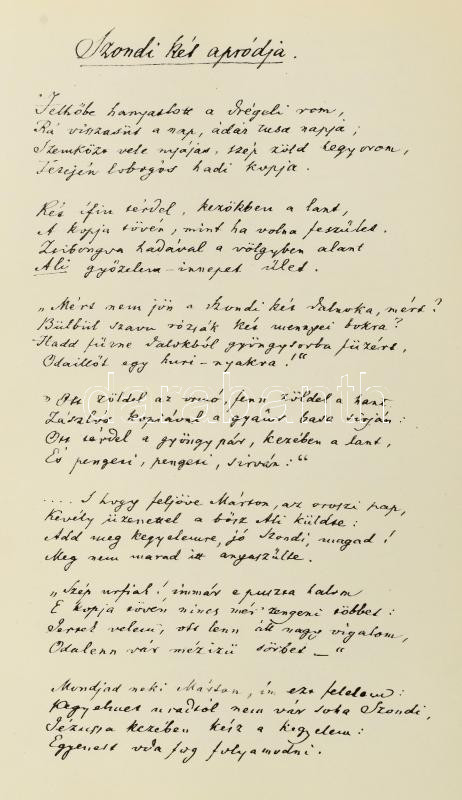 Szondi két apródja.
Felhőbe hanyatlott a drégeli rom,
Rá visszasüt a nap, ádáz tusa napja;
Szemközt vele nyájas, szép zöld hegyorom,
Tetején lobogós hadi kopja.
Két ifiu térdel, kezökben a lant,
A kopja tövén, mint ha volna feszület.
Zsibongva hadával a völgyben alant
Ali győzelem-ünnepet ület.
„Mért nem jön a Szondi két dalnoka, mért?
Bülbül szavu rózsák két mennyei bokra?
Hadd fűzne dalokból gyöngysorba füzért,
Odaillőt egy huri-nyakra!"
„Ott zöldel az ormó, fenn zöldel a hant
Zászlós kopiával a gyaur basa sírján:
Ott térdel a gyöngypár, kezében a lant,
És pengeti, pengeti, sírván:"
.... S hogy feljöve Márton, az oroszi pap,
Kevély üzenettel a bősz Ali küldte:
Add meg kegyelemre, jó Szondi, magad!
Meg nem marad itt anyaszülte.
„Szép urfiak! immár e puszta halom
E kopja tövén nincs mér' zengeni többet:
Jertek velem, ott lenn áll nagy vigalom,
Odalenn vár mézizü sörbet —"
Mondjad neki Márton, im ezt felelem:
Kegyelmet uradtól nem vár soha Szondi,
Jézusa kezében kész a kegyelem:
Egyenest oda fog folyamodni.
darabanth